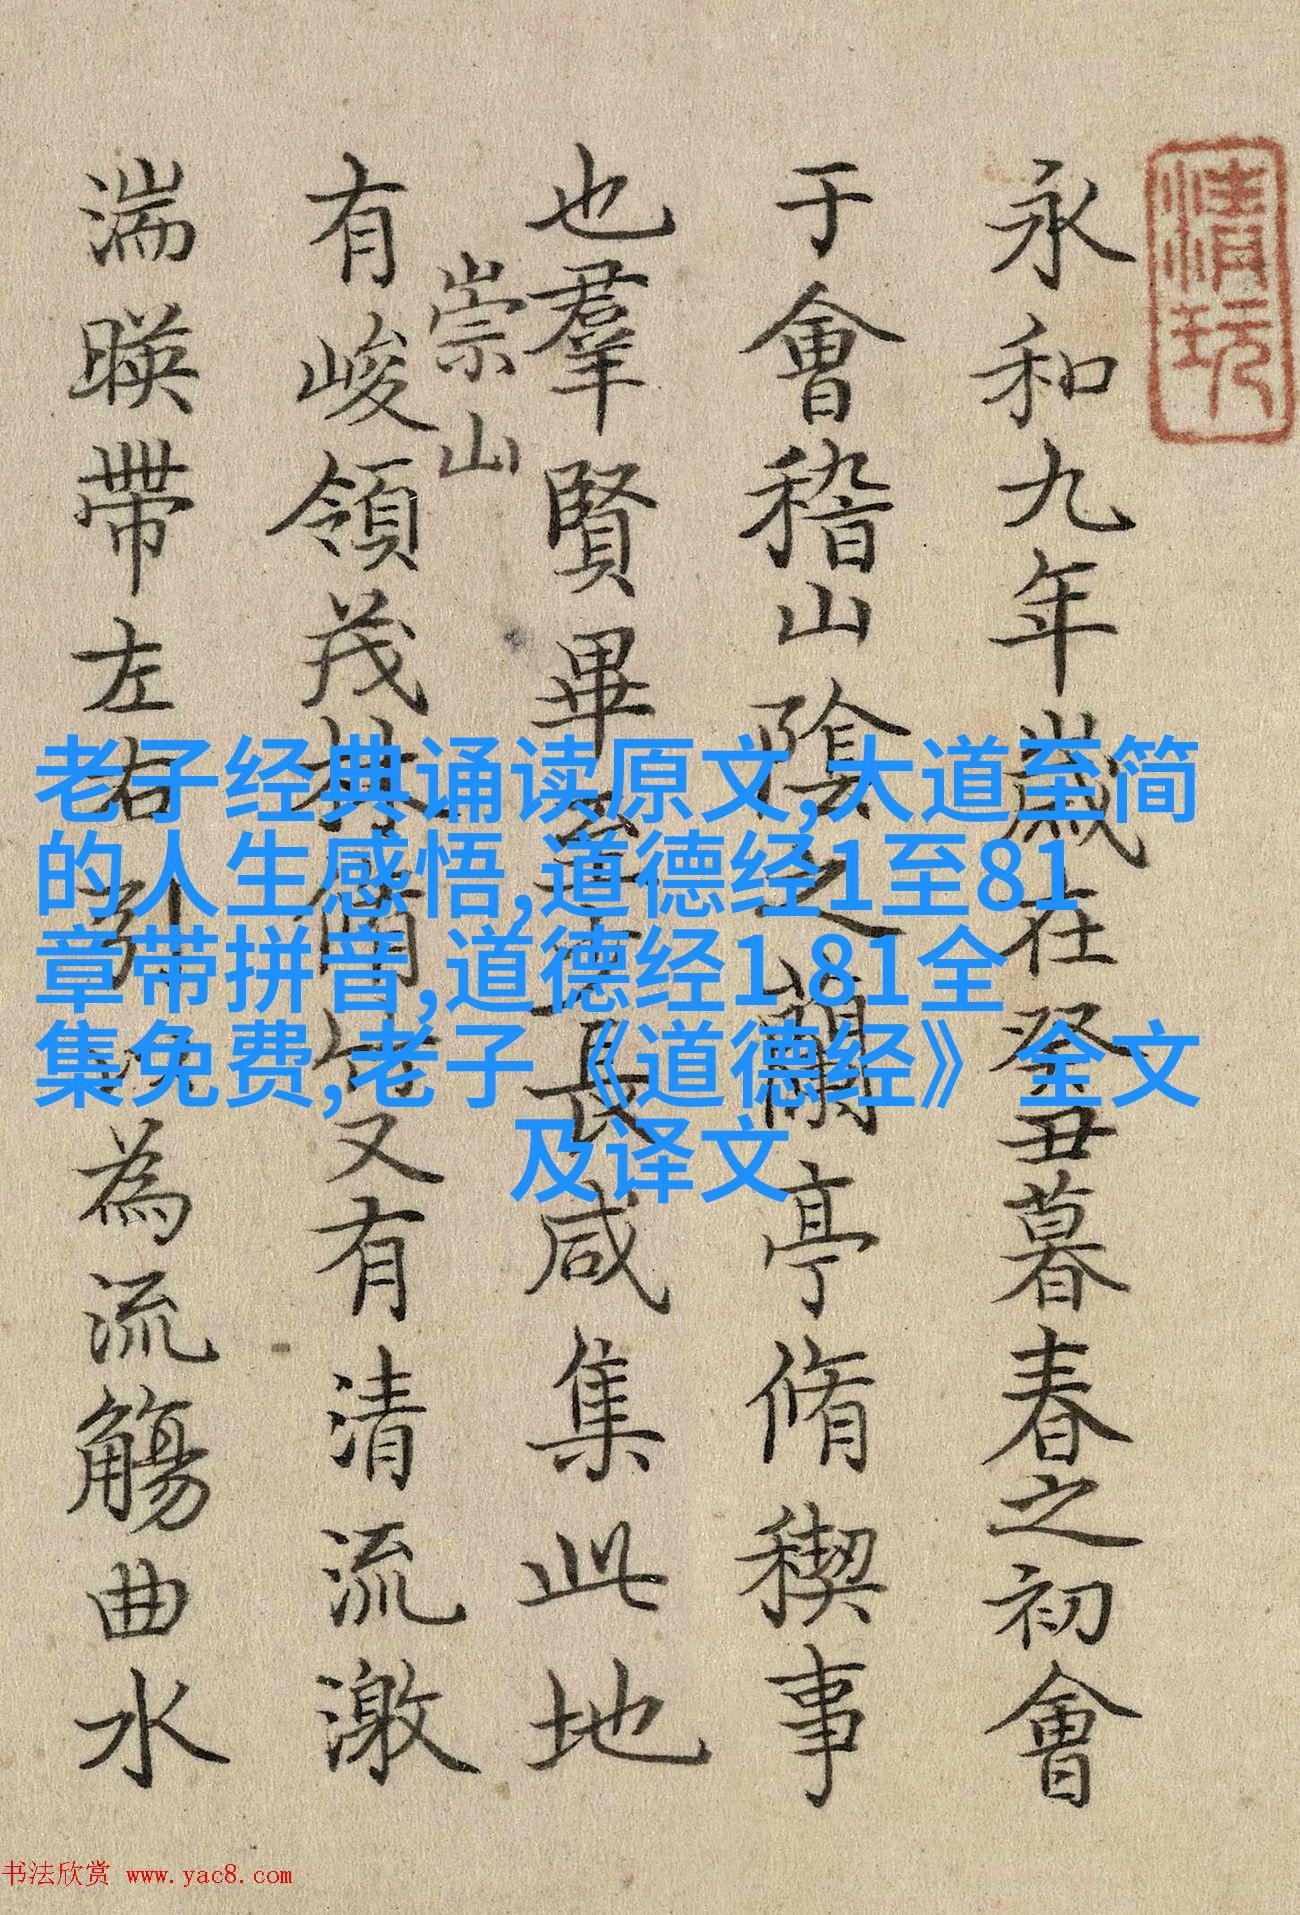 永和九年歲在癸丑暮春之初會
于會稽山陰之蘭亭脩稧事
也羣賢畢至少長咸集此地
崇山
有峻領茂林脩竹又有清流激
湍暎帶左右引以為流觴曲水
清玩
老子经典诵读原文,大道至简
的人生感悟,道德经1至81
章带拼音,道德经1 81全
集免费,老子《道德经》全文
及译文
书法欣赏 www.yac8.com